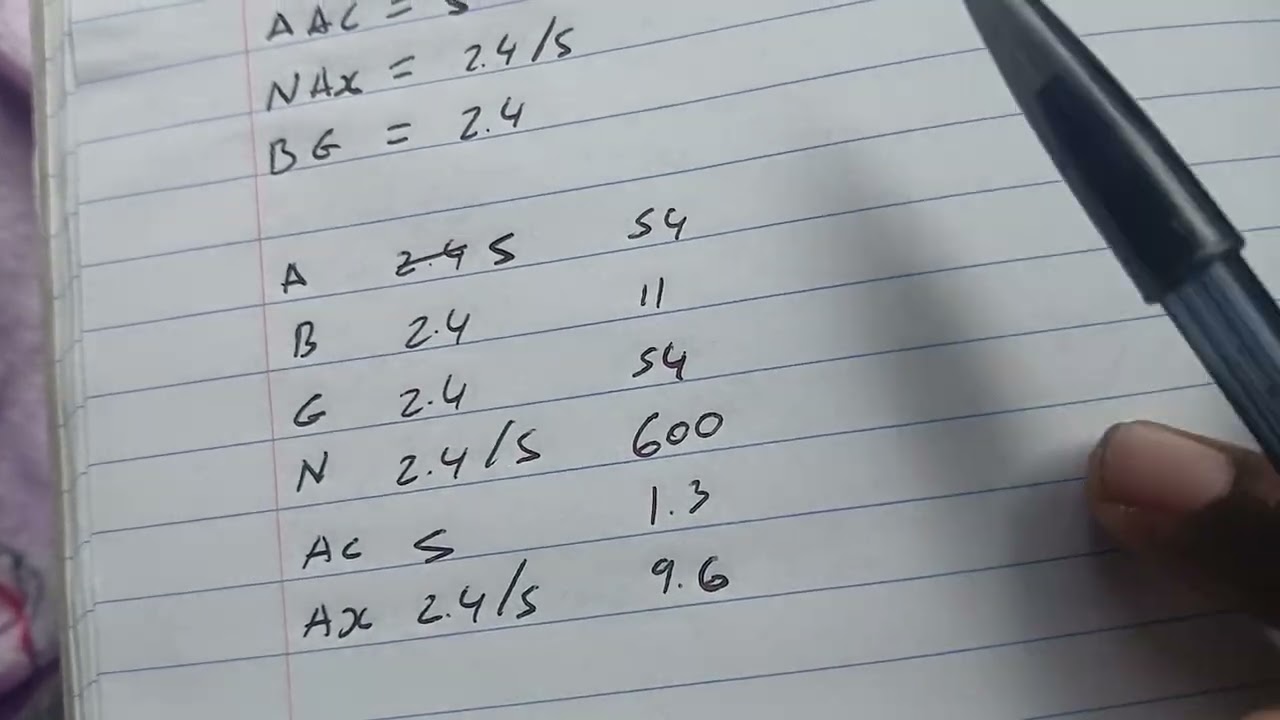 AAC = 5
NAX = 2.4/5
BG = 2.4
A 2.4 5 54
B 2.4 11
G 2.4 54
N 2.4/5 600
AC 5 1.3
AX 2.4/5 9.6